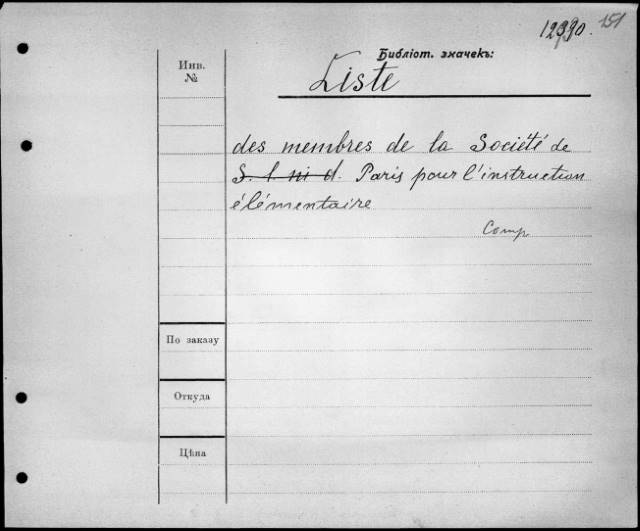 151
Библіот. значекъ:
Инв.
№
Liste
des membres de la Société de
S. l. ni d. Paris pour l'instruction
élémentaire
Comp
По заказу
Откуда
Цѣна